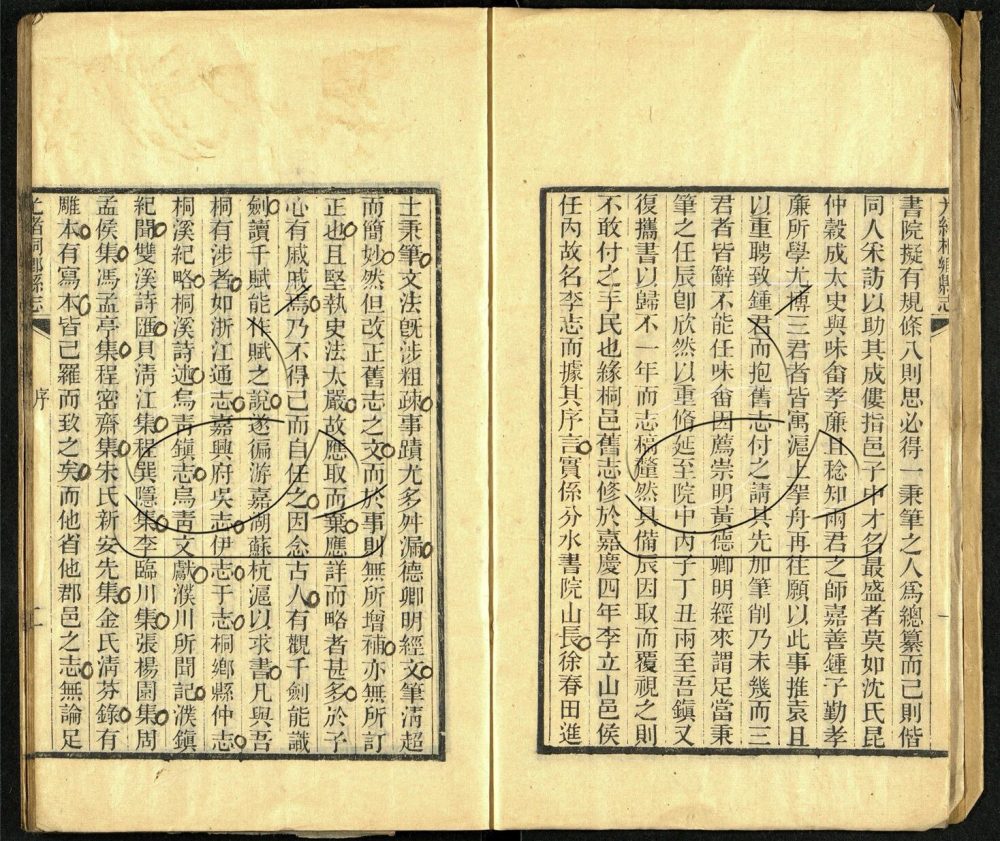 光緒桐鄉縣志
書院擬有規條八則思必得一秉筆之人爲總纂而已則偕
同人采訪以助其成僂指邑子中才名最盛者莫如沈氏昆
仲穀成太史與味畬孝廉且稔知兩君之師嘉善鍾子勤孝
廉所學尤博三君者皆寓滬上拏舟再往願以此事推袁且
以重聘致鍾君而抱舊志付之請其先加筆削乃未幾而三
君者皆辭不能任味畬因薦崇明黃德卿明經來謂足當秉
筆之任辰卽欣然以重脩延至院中丙子丁丑兩至吾鎭又
復攜書以歸不一年而志稿釐然具備辰因取而覆視之則
不敢付之手民也緣桐邑舊志修於嘉慶四年李立山邑侯
任內故名李志而據其序言實係分水書院山長徐春田進
士秉筆文法旣涉粗疎事蹟尤多舛漏德卿明經文筆淸超
而簡妙然但改正舊志之文而於事則無所增補亦無所訂
正也且堅執史法太嚴故應取而棄應詳而略者甚多於予
心有戚戚焉乃不得已而自任之因念古人有觀千劍能識
劍讀千賦能作賦之說遂徧游嘉湖蘇杭滬以求書凡與吾
桐有涉者如浙江通志嘉興府吳志伊志于志桐鄉縣仲志
桐溪紀略桐溪詩述烏靑鎭志烏靑文獻濮川所聞記濮鎭
紀聞雙溪詩匯貝淸江集程巽隱集李臨川集張楊園集周
孟侯集馮孟亭集程密齋集朱氏新安先集金氏淸芬錄有
雕本有寫本皆已羅而致之矣而他省他郡邑之志無論足
光緒桐鄉縣志
序
二